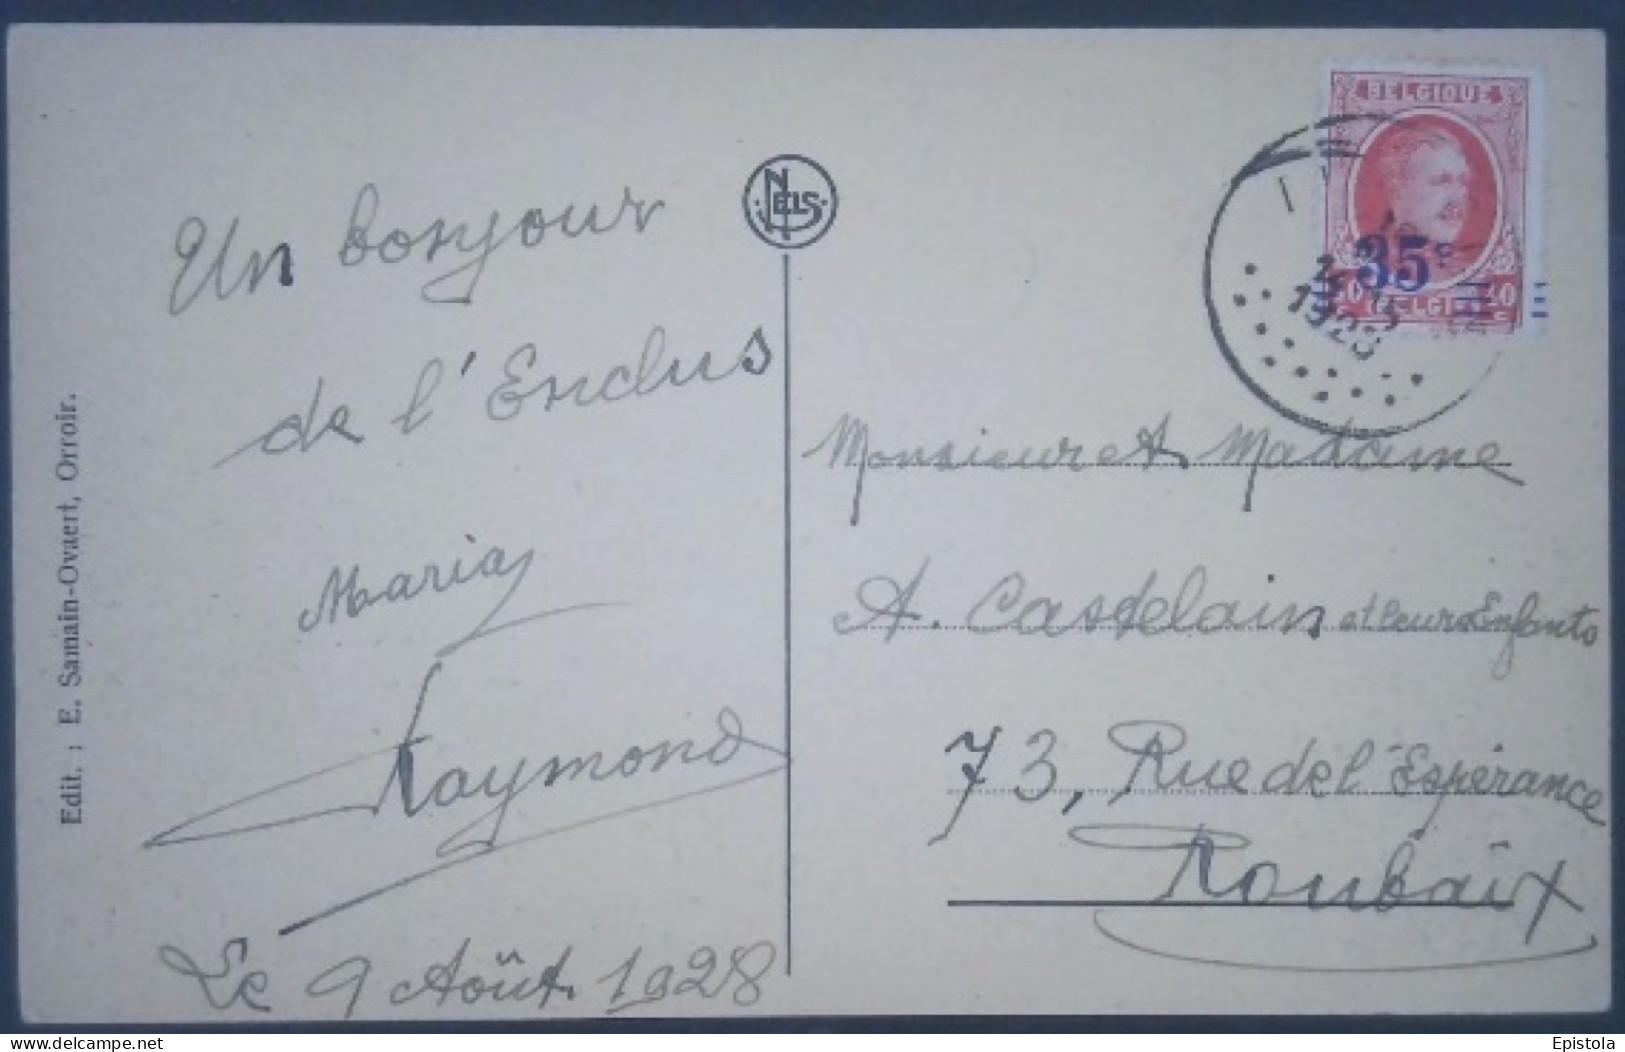 Un bonjour
de l'Enclus
Maria
Raymond
Le 9 Août 1928
Edit. : E. Samain-Ovaert, Orroir.
NELS
BELGIQUE
35
40
BELGIË
1928
Monsieur et Madame
A. Castelain et leurs Enfants
73, Rue de l'Espérance
Roubaix
delcampe.net
Epistola